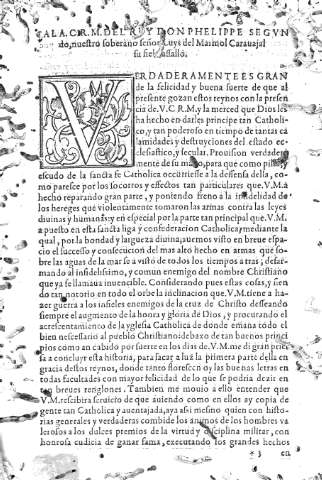 A LA C.R.M. DEL REY DON PHELIPPE SEGVN
do, nuestro soberano señor Luys del Marmol Carauajal
su fiel vassallo.
VERDADERAMENTE ES GRAN
de la felicidad y buena suerte de que al
presente gozan estos reynos con la presen
cia de V.C.R.M. y la merced que Dios les
ha hecho en darles principe tan Catholi-
co, y tan poderoso en tiempo de tantas ca
lamidades y destruyciones del estado ec-
clesiastico, y secular. Prouision verdadera
mente de su mano, para que como pilar y
escudo de la sancta fe Catholica occurriesse a la deffensa della, co-
mo paresce por los socorros y effectos tan particulares que V.M. a
hecho reparando gran parte, y poniendo freno a la infidelidad de
los hereges que violentamente tomaron las armas contra las leyes
diuinas y humanas y en especial por la parte tan principal que V.M.
a puesto en esta sancta liga y confederacion Catholica, mediante la
qual, por la bondad y largueza diuina, auemos visto en breue espa-
cio el successo y consecucion del mas alto hecho en armas que so-
bre las aguas de la mar se a visto de todos los tiempos atras, defar-
mando al infidelissimo, y comun enemigo del nombre Christiano
que ya se llamaua inuencible. Considerando pues estas cosas, y sien
do tan notorio en todo el orbe la inclinacion que V.M. tiene a ha-
zer guerra a los infieles enemigos de la cruz de Christo desseando
siempre el augmento de la honra y gloria de Dios, y procurando el
acrescentamiento de la yglesia Catholica de donde emana todo el
bien necessario al pueblo Christiano debaxo de tan buenos princi
pios como an cabado por suerte en los dias de V.M. me di gran prie
sa a concluyr esta historia, para sacar a luz la primera parte della en
gracia destos reynos, donde tanto florescen oy las buenas letras en
todas facultades con mayor felicidad de lo que se podria dezir en
tan breues renglones. Tambien me mouio a ello entender que
V.M. rescibira seruicio de que auiendo como en ellos ay copia de
gente tan Catholica y auentajada, aya assi mesmo quien con histo-
rias generales y verdaderas combide los animos de los hombres va
lerosos a los dulces premios de la virtud y disciplina militar, con
honrosa cudicia de ganar fama, executando los grandes hechos
en